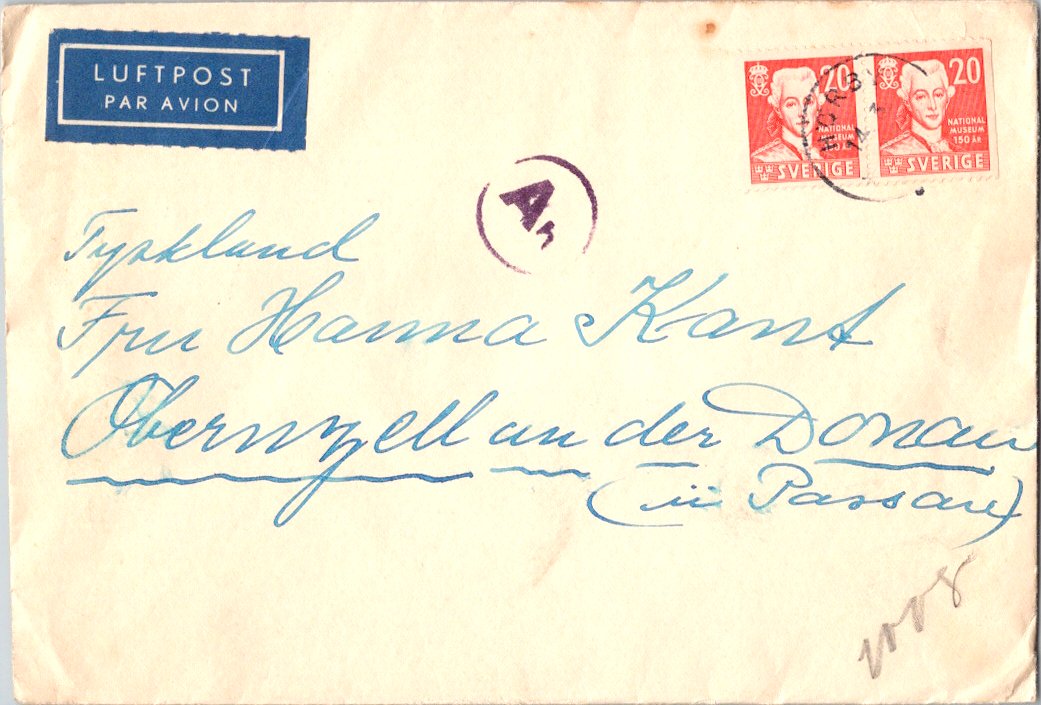 LUFTPOST
PAR AVION
20
20
NATIONAL
MUSEUM
150 ÅR
SVERIGE
NATIONAL
MUSEUM
150 ÅR
SVERIGE
HÖRBY
14
A
Tyskland
Fru Hanna Kant
Obernzell an der Donau
(in Passau)